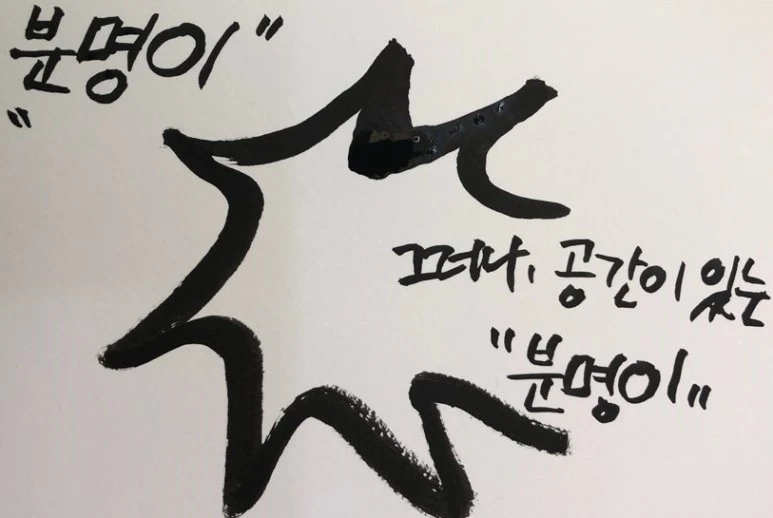 "분명이"
그러나, 공간이 있는
"분명이"